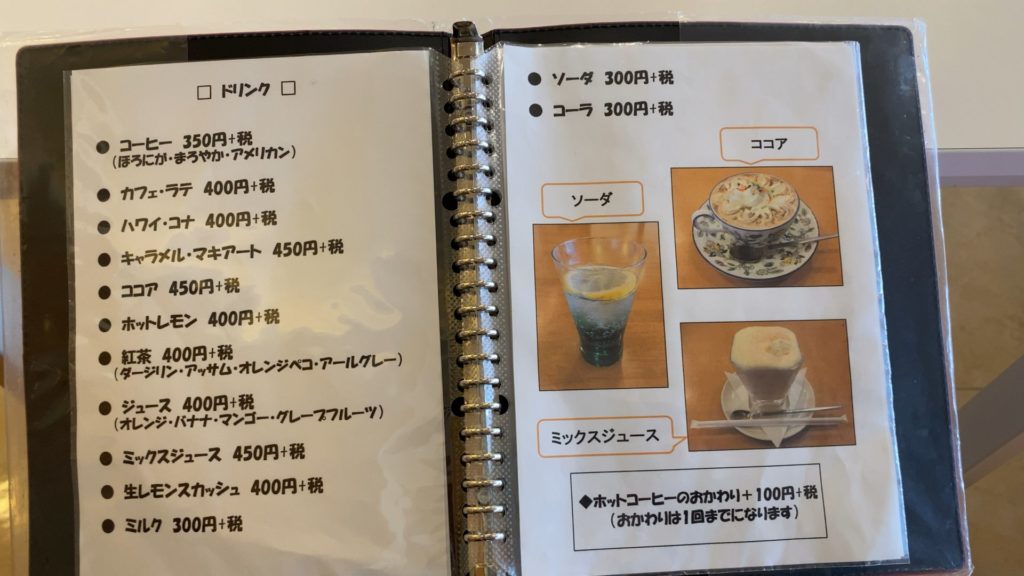 □ ドリンク □
● コーヒー 350円+税
(ほろにが・まろやか・アメリカン)
● カフェ・ラテ 400円+税
● ハワイ・コナ 400円+税
● キャラメル・マキアート 450円+税
● ココア 450円+税
● ホットレモン 400円+税
● 紅茶 400円+税
(ダージリン・アッサム・オレンジペコ・アールグレー)
● ジュース 400円+税
(オレンジ・バナナ・マンゴー・グレープフルーツ)
● ミックスジュース 450円+税
● 生レモンスカッシュ 400円+税
● ミルク 300円+税
● ソーダ 300円+税
● コーラ 300円+税
ココア
ソーダ
ミックスジュース
◆ホットコーヒーのおかわり+100円+税
(おかわりは1回までになります)